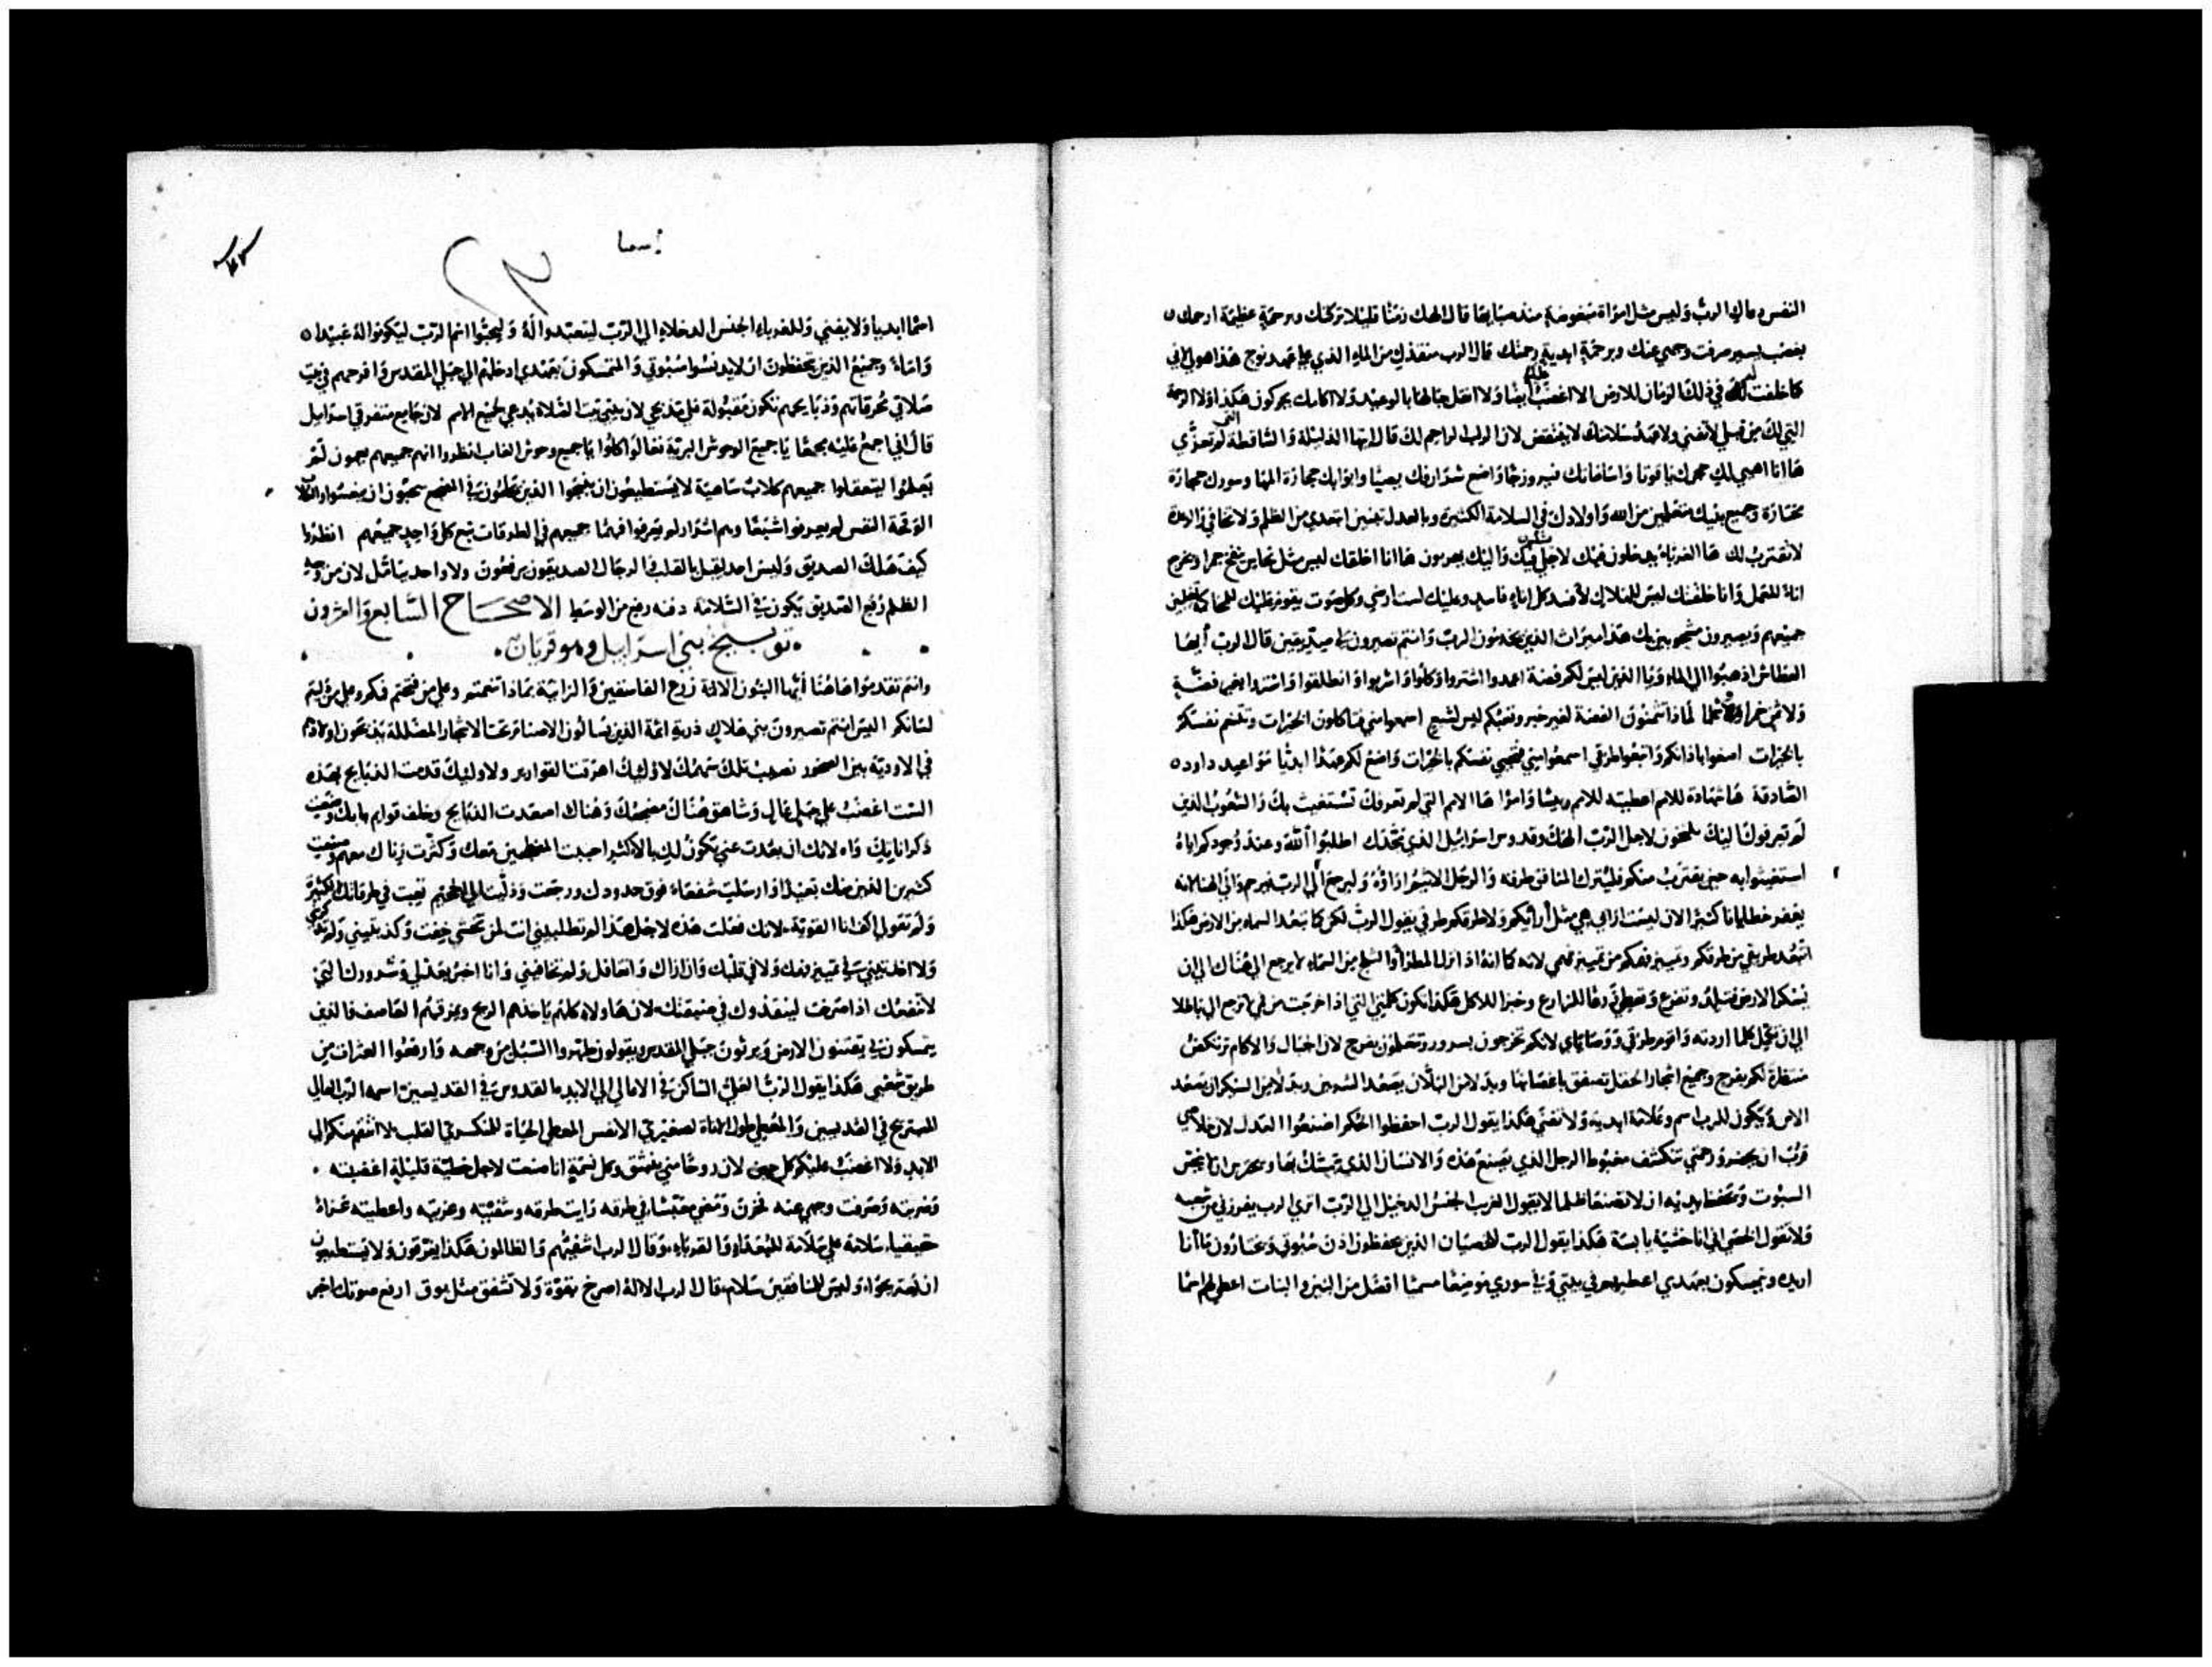 النفس دعاك الرب وليس مثل امراة مبغوضة منذ صباها قال الهك زمنا قليلا تركتك وبرحمة عظيمة ارحمك
بغضب يسير صرفت وجهي عنك وبرحمة ابدية رحمتك قال الرب منقذك من الماء الذي على عهد نوح هذا هو لي لاني
كما حلفت له في ذلك الزمان للارض الا اغضب عليك ايضا ولا انقل جبالها بالوعيد ولا اكامك يحركون هكذا ولا الرحمة
التي لك من قبلي لا تفنى ولا عهد سلامتك لا ينتقض لان الرب الراحم لك قال ايتها الذليلة والساقطة التي لم تعزي
ها انا اهيي لك حجرك ياقوتا واساساتك فيروزجا واضع شراريفك يصبا وابوابك حجارة المها وسورك حجارة
مختارة وجميع بنيك متعلمين من الله واولادك في السلامة الكثيرة وبالعدل تبنين ابتعدي من الظلم ولا تخافي والرعدة
لا تقترب لك ها الغرباء يدخلون اليك لاجلي فيك واليك يهربون ها انا اخلقك ليس مثل نحاس ينفخ جمرا ويخرج
اناء للعمل وانا خلقتك ليس للهلاك لافسد كل اناء فاسد وعليك لست ارضي وكل صوت يقوم عليك للمحاكمة تغلبين
جميعهم ويصيرون مشجوبين بك هذا ميراث الذين يخدمون الرب وانتم تصيرون لي صديقين قال الرب ايها
العطاش اذهبوا الى الماء ويا الذين ليس لكم فضة اعمدوا اشتروا وكلوا واشربوا وانطلقوا واشتروا بغير فضة
ولا ثمن خمرا وشحما لماذا تثمنون الفضة لغير خبز وتعبكم ليس لشبع اسمعوا مني فتاكلون الخيرات وتتنعم نفسكم
بالخيرات اصغوا باذانكم واتبعوا طرقي اسمعوا مني فتحيي نفسكم بالخيرات واضع لكم عهدا ابديا مواعيد داود
الصادقة ها شهادة للامم اعطيته للامم رييسا وامرا ها الامم التي لم تعرفك تستغيث بك والشعوب الذين
لم يعرفوك اليك يلجون لاجل الرب الهك وقدوس اسراييل الذي مجدك اطلبوا الله وعند وجودكم اياه
استغيثوا به حين يقترب منكم فليترك المنافق طرقه والرجل الاثيم اراؤه وليرجع الى الرب فيرحم والى الهنا لانه
يغفر خطايانا كثيرا لان ليست اراي هي مثل ارائكم ولا طرقكم طرقي يقول الرب لكن كما تبعد السماء من الارض هكذا
تبعد طريقي من طرقكم وتمييز فهمكم من تمييز فهمي لانه كما انه اذا نزل المطر او الثلج من السماء لا يرجع الى هناك الى ان
يسكر الارض فتلد وتفرع وتعطي زرعا للزارع وخبزا للاكل هكذا تكون كلمتي التي اذا خرجت من فمي لا ترجع الي باطلا
الى ان تكمل كلما اردته واقوم طرقي ووصاياي لانكم تخرجون بسرور وتتعلمون بفرح لان الجبال والاكام ترتكض
منتظرة لكم بفرح وجميع اشجار الحقل تصفق باغصانها وبدلا من البلان يصعد السرو وبدلا من السيكران يصعد
الاس ويكون للرب اسم وعلامة ابدية ولا تفنى هكذا يقول الرب احفظوا الحكم اصنعوا العدل لان خلاصي
قرب ان يحضر ورحمتي تنكشف مغبوط الرجل الذي يصنع هذه والانسان الذي يتمسك بها ويحترس ان لا ينجس
السبوت وتحفظ يديه ان لا تصنعا ظلما لا يقول الغريب الجنس الدخيل الى الرب اترى الرب يفرزني من شعبه
ولا تقول الخصي اني انا خشبة يابسة هكذا يقول الرب للخصيان الذين يحفظون اذن سبوتي ويختارون ما انا
اريده ويتمسكون بعهدي اعطيهم في بيتي وفي سوري موضعا مسميا افضل من البنين والبنات اعطي لهم اسما
اسما ابديا ولا يفنى وللغرباء الجنس الدخلاء الى الرب ليتعبدوا له وليحبوا اسم الرب ليكونوا له عبيدا
واماء وجميع الذين يحفظون ان لا يدنسوا سبوتي والمتمسكون بعهدي ادخلهم الى جبلي المقدس وافرحهم في بيت
صلاتي محرقاتهم وذبايحهم تكون مقبولة على مذبحي لان بيتي بيت الصلاة يدعى لجميع الامم لان جامع متفرقي اسراييل
قال اني اجمع عليه مجمعا يا جميع الوحوش البرية تعالوا كلوا يا جميع وحوش الغاب انظروا انهم جميعهم عميون لم
يعلموا ليتعقلوا جميعهم كلاب ساهية لا يستطيعون ان ينبحوا الذين يحلمون في المضجع يحبون ان ينعسوا والكلاب
الوقحة النفس لم يعرفوا شبعا وهم اشرار لم يعرفوا فهما جميعهم في الطرقات تبع كل واحد جميعهم انظروا
كيف هلك الصديق وليس احد يقبل بالقلب الرجال الصديقون يرفعون ولا واحد يتامل لان من وجه
الظلم رفع الصديق يكون في السلامة دفنه رفع من الوسط الاصحاح السابع والعشرون
توبيخ بني اسراييل وهو قربان
وانتم تقدموا هاهنا ايها البنون الاثمة زرع الفاسقين والزانية بماذا تنعمتم وعلى من فتحتم فمكم وعلى من دليتم
لسانكم اليس انتم تصيرون بني هلاك ذرية اثمة الذين يسالون الاصنام تحت الاشجار المظللة يذبحون اولادهم
في الاودية بين الصخور نصيبك تلك سهمك لاوليك اهرقت القوارير ولاوليك قدمت الذبايح بهذه
الست اغضب على جبل عال وشاهق هناك مضجعك وهناك اصعدت الذبايح وخلف قوايم بابك وضعت
كثيرين الذين منك بعيدا وارسلت شفعاء فوق حدودك ورجعت وذللت الى الجحيم تعبت في طرقاتك الكثيرة
لا تنفعك اذا صرخت لينقذوك في ضيقتك لان هاولاء كلهم ياخذهم الريح ويمزقهم العاصف فالذين
يتمسكون بي يقتنون الارض ويرثون جبلي المقدس ويقولون طهروا السبل من وجهه وارفعوا العثرات من
طريق شعبي هكذا يقول الرب العلي الساكن في الاعالي الى الابد القدوس في القديسين اسمه الرب العالي
المستريح في القديسين والمعطي طول الاناة لصغيري الانفس المعطي الحياة للمنكسري القلب لا انتقم منكم الى
الابد ولا اغضب عليكم كل حين لان روحا مني ينبثق وكل نسمة انا صنعت لاجل خطية قليلة اغضبته
وضربته وصرفت وجهي عنه فحزن ومضى معبسا في طرقه رايت طرقه وشفيته وعزيته واعطيته عزاء
حقيقيا سلامة على سلامة للبعداء والقرباء وقال الرب اشفيهم والظالمون هكذا يغرقون ولا يستطيعون
ان يستريحوا وليس للمنافقين سلام قال الرب الاله اصرخ بقوة ولا تشفق مثل بوق ارفع صوتك اخبر